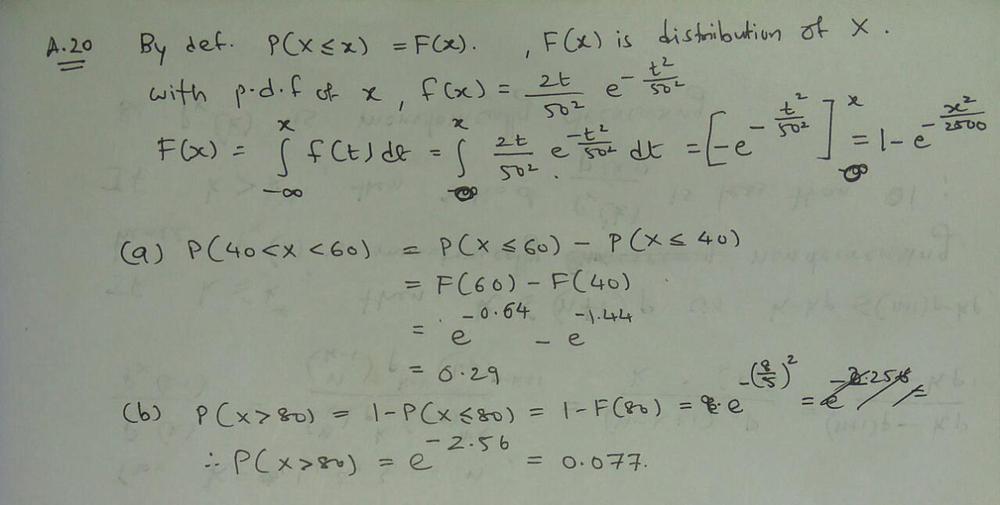 A.20 By def. P(X ≤ x) = F(x). , F(x) is distribution of X.
with p.d.f of x, f(x) = 2t/50² e^(-t²/50²)
F(x) = ∫_{-∞}^{x} f(t) dt = ∫_{0}^{x} 2t/50² e^(-t²/50²) dt = [-e^(-t²/50²)]_{0}^{x} = 1-e^(-x²/2500)
(a) P(40<x<60) = P(X ≤ 60) - P(X ≤ 40)
= F(60) - F(40)
= e^(-0.64) - e^(-1.44)
= 0.29
(b) P(x>80) = 1-P(x≤80) = 1-F(80) = e^(-(8/5)²) =
∴ P(x>80) = e^(-2.56) = 0.077.